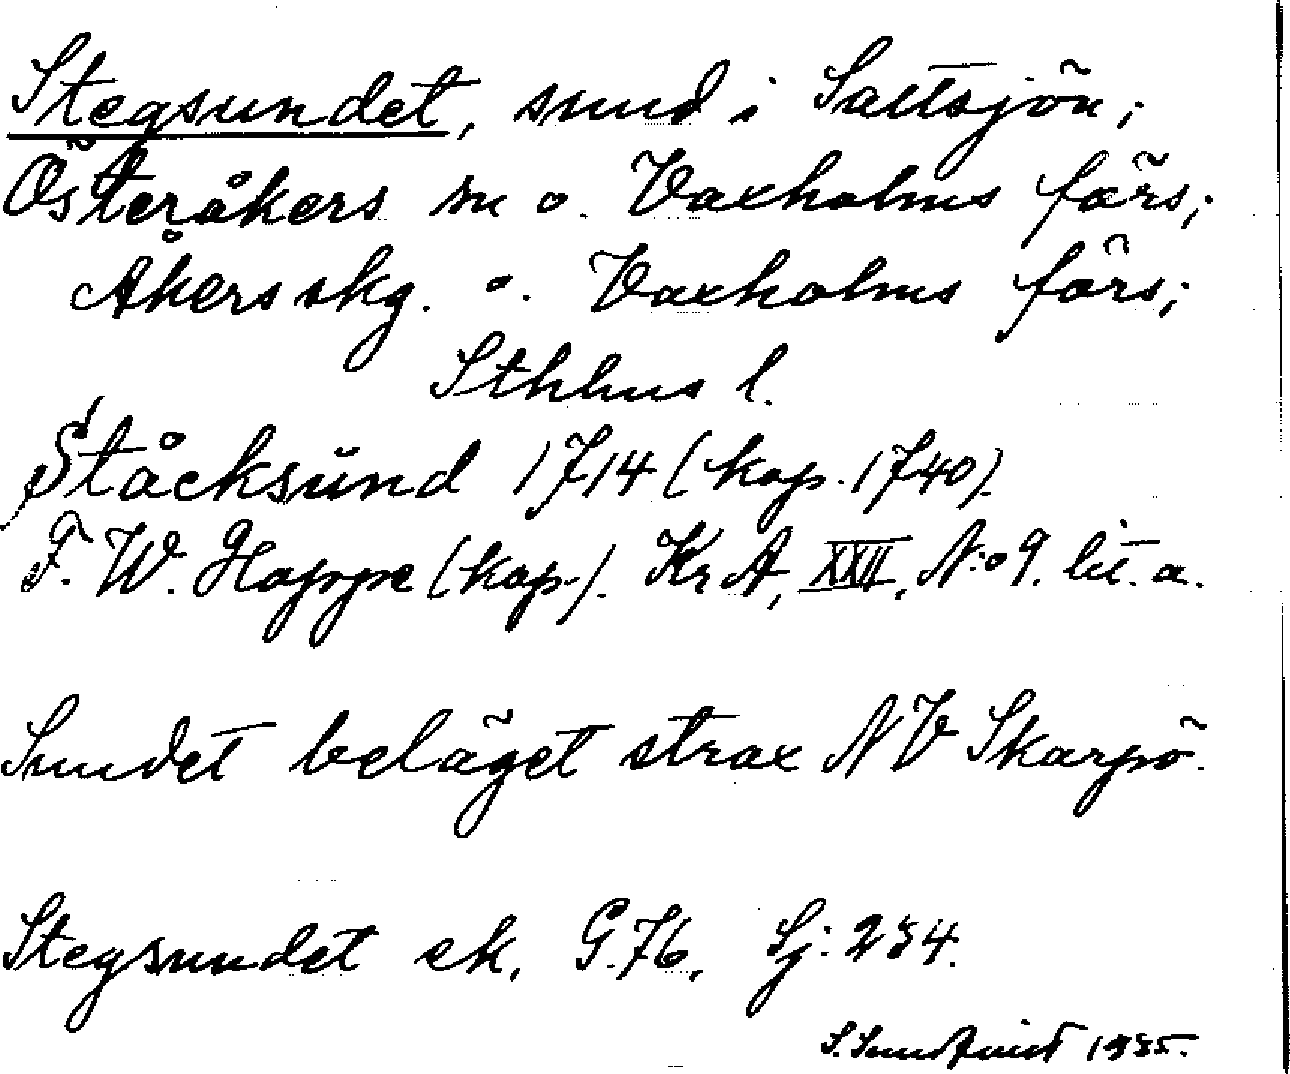 Stegsundet, sund i Saltsjön;
Österåkers sn o. Vaxholms förs;
Åkers skg. o. Vaxholms förs;
Sthlms l.
Ståcksund 1714 (kop. 1740).
F. W. Hoppe (kop.). Kr A, XXII, N:o 9. lit. a.
Sundet beläget strax NV Skarpö.
Stegsundet ek. G. 76, Sj: 234.
S. Sundqvist 1935.